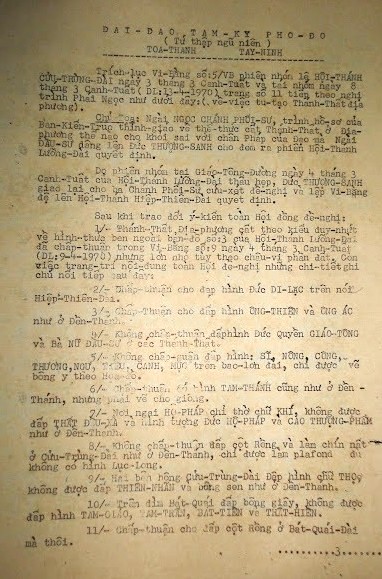 DAI-DAO TAM-KY PHO-DO
( Tứ thập ngũ niên )
TOA-THANH TAY-NINH
Trích-lục Vi-Bằng số:5/VB phiên nhóm lệ HỘI-THÁNH
CỬU-TRÙNG-ĐÀI ngày 3 tháng 3 Canh-Tuất và tái nhóm ngày 8
tháng 3 Canh-Tuất( DL:13-4-1970), trang số 11 tiếp theo nghị
trình Phái Ngọc như dưới đây:(.về-việc tu-tạo Thánh-Thất địa
phương).
Chủ Tọa: Ngài NGỌC CHÁNH PHỐI-SƯ, trình hồ-sơ của
Ban-Kiến-Trúc thỉnh-giáo về thể-thức cất Thánh-Thất ở Địa-
phương thế nào cho khỏi sai với chơn Pháp của Đạo mà Ngài
ĐẦU-SƯ dâng lên Đức THƯỢNG-SANH cho đưa ra phiên Hội-Thánh
Lưỡng-Đài quyết định.
Do phiên nhóm tại Giáp-Tông-Đường ngày 4 tháng 3
Canh-Tuất của Hội-Thánh Lưỡng-Đài thâu hẹp, Đức THƯỢNG-SANH
giao lại cho ba Chánh Phối-Sư cứu-xét đề-nghị và lập Vi-Bằng
để lên Hội-Thánh Hiệp-Thiên-Đài quyết định.
Sau khi trao đổi ý-kiến toàn Hội đồng đề-nghị:
1/- Thánh-Thất Địa-phương cất theo kiểu duy-nhứt
về hình-thức bên ngoài bản-đồ số:3 của Hội-Thánh Lưỡng-Đài
đã chấp-thuận trong Vi-Bằng số:9 ngày 4 tháng 3 Canh-Tuất
(DL:9-4-1970) nhưng lớn nhỏ tùy theo châu-vi phần đất. Còn
việc trang-trí nội-dung toàn Hội đề-nghị những chi-tiết ghi
chú nối tiếp sau đây:
2/- Chấp-thuận cho đắp hình Đức DI-LẶC trên nóc
Hiệp-Thiên-Đài.
3/- Chấp-Thuận cho đắp hình ÔNG-THIỆN và ÔNG ÁC
như ở Đền-Thánh.
4/- Không chấp-thuận đắp hình Đức Quyền GIÁO-TÔNG
và Bà NỮ ĐẦU-SƯ ở các Thánh-Thất.
5/- Không chấp-thuận đắp hình: SĨ, NÔNG, CÔNG,
THƯƠNG, NGƯ, TIỀU, CANH, MỤC trên bao-lơn đài, chỉ được vẽ
bông y theo
6/- Chấp-thuận có hình TAM-THÁNH cũng như ở Đền -
Thánh, nhưng phải vẽ cho giống.
2/- Nơi ngai HỘ-PHÁP chỉ thờ chữ KHÍ, không được
đắp THẤT ĐẦU-XÀ và hình tượng Đức HỘ-PHÁP và CAO THƯỢNG-PHẨM
như ở Đền-Thánh.
8/- Không chấp-thuận đắp cột Rồng và làm chín nấc
ở Cửu-Trùng-Đài như ở Đền-Thánh, chỉ được làm plafond dù
không có hình Lục-Long.
9/- Hai bên hông Cửu-Trùng-Đài Đắp hình chữ THỌ
không được đắp THIÊN-NHÃN và bông sen như ở Đền-Thánh.
10/- Trên diềm Bát-Quái đắp bông giấy, không được
đắp hình TAM-GIÁO, TAM-TRẤN, BÁT-TIÊN và THẤT-HIỀN.
11/- Chấp-thuận cho đắp cột Rồng ở Bát-Quái-Đài
mà thôi.
..........3...